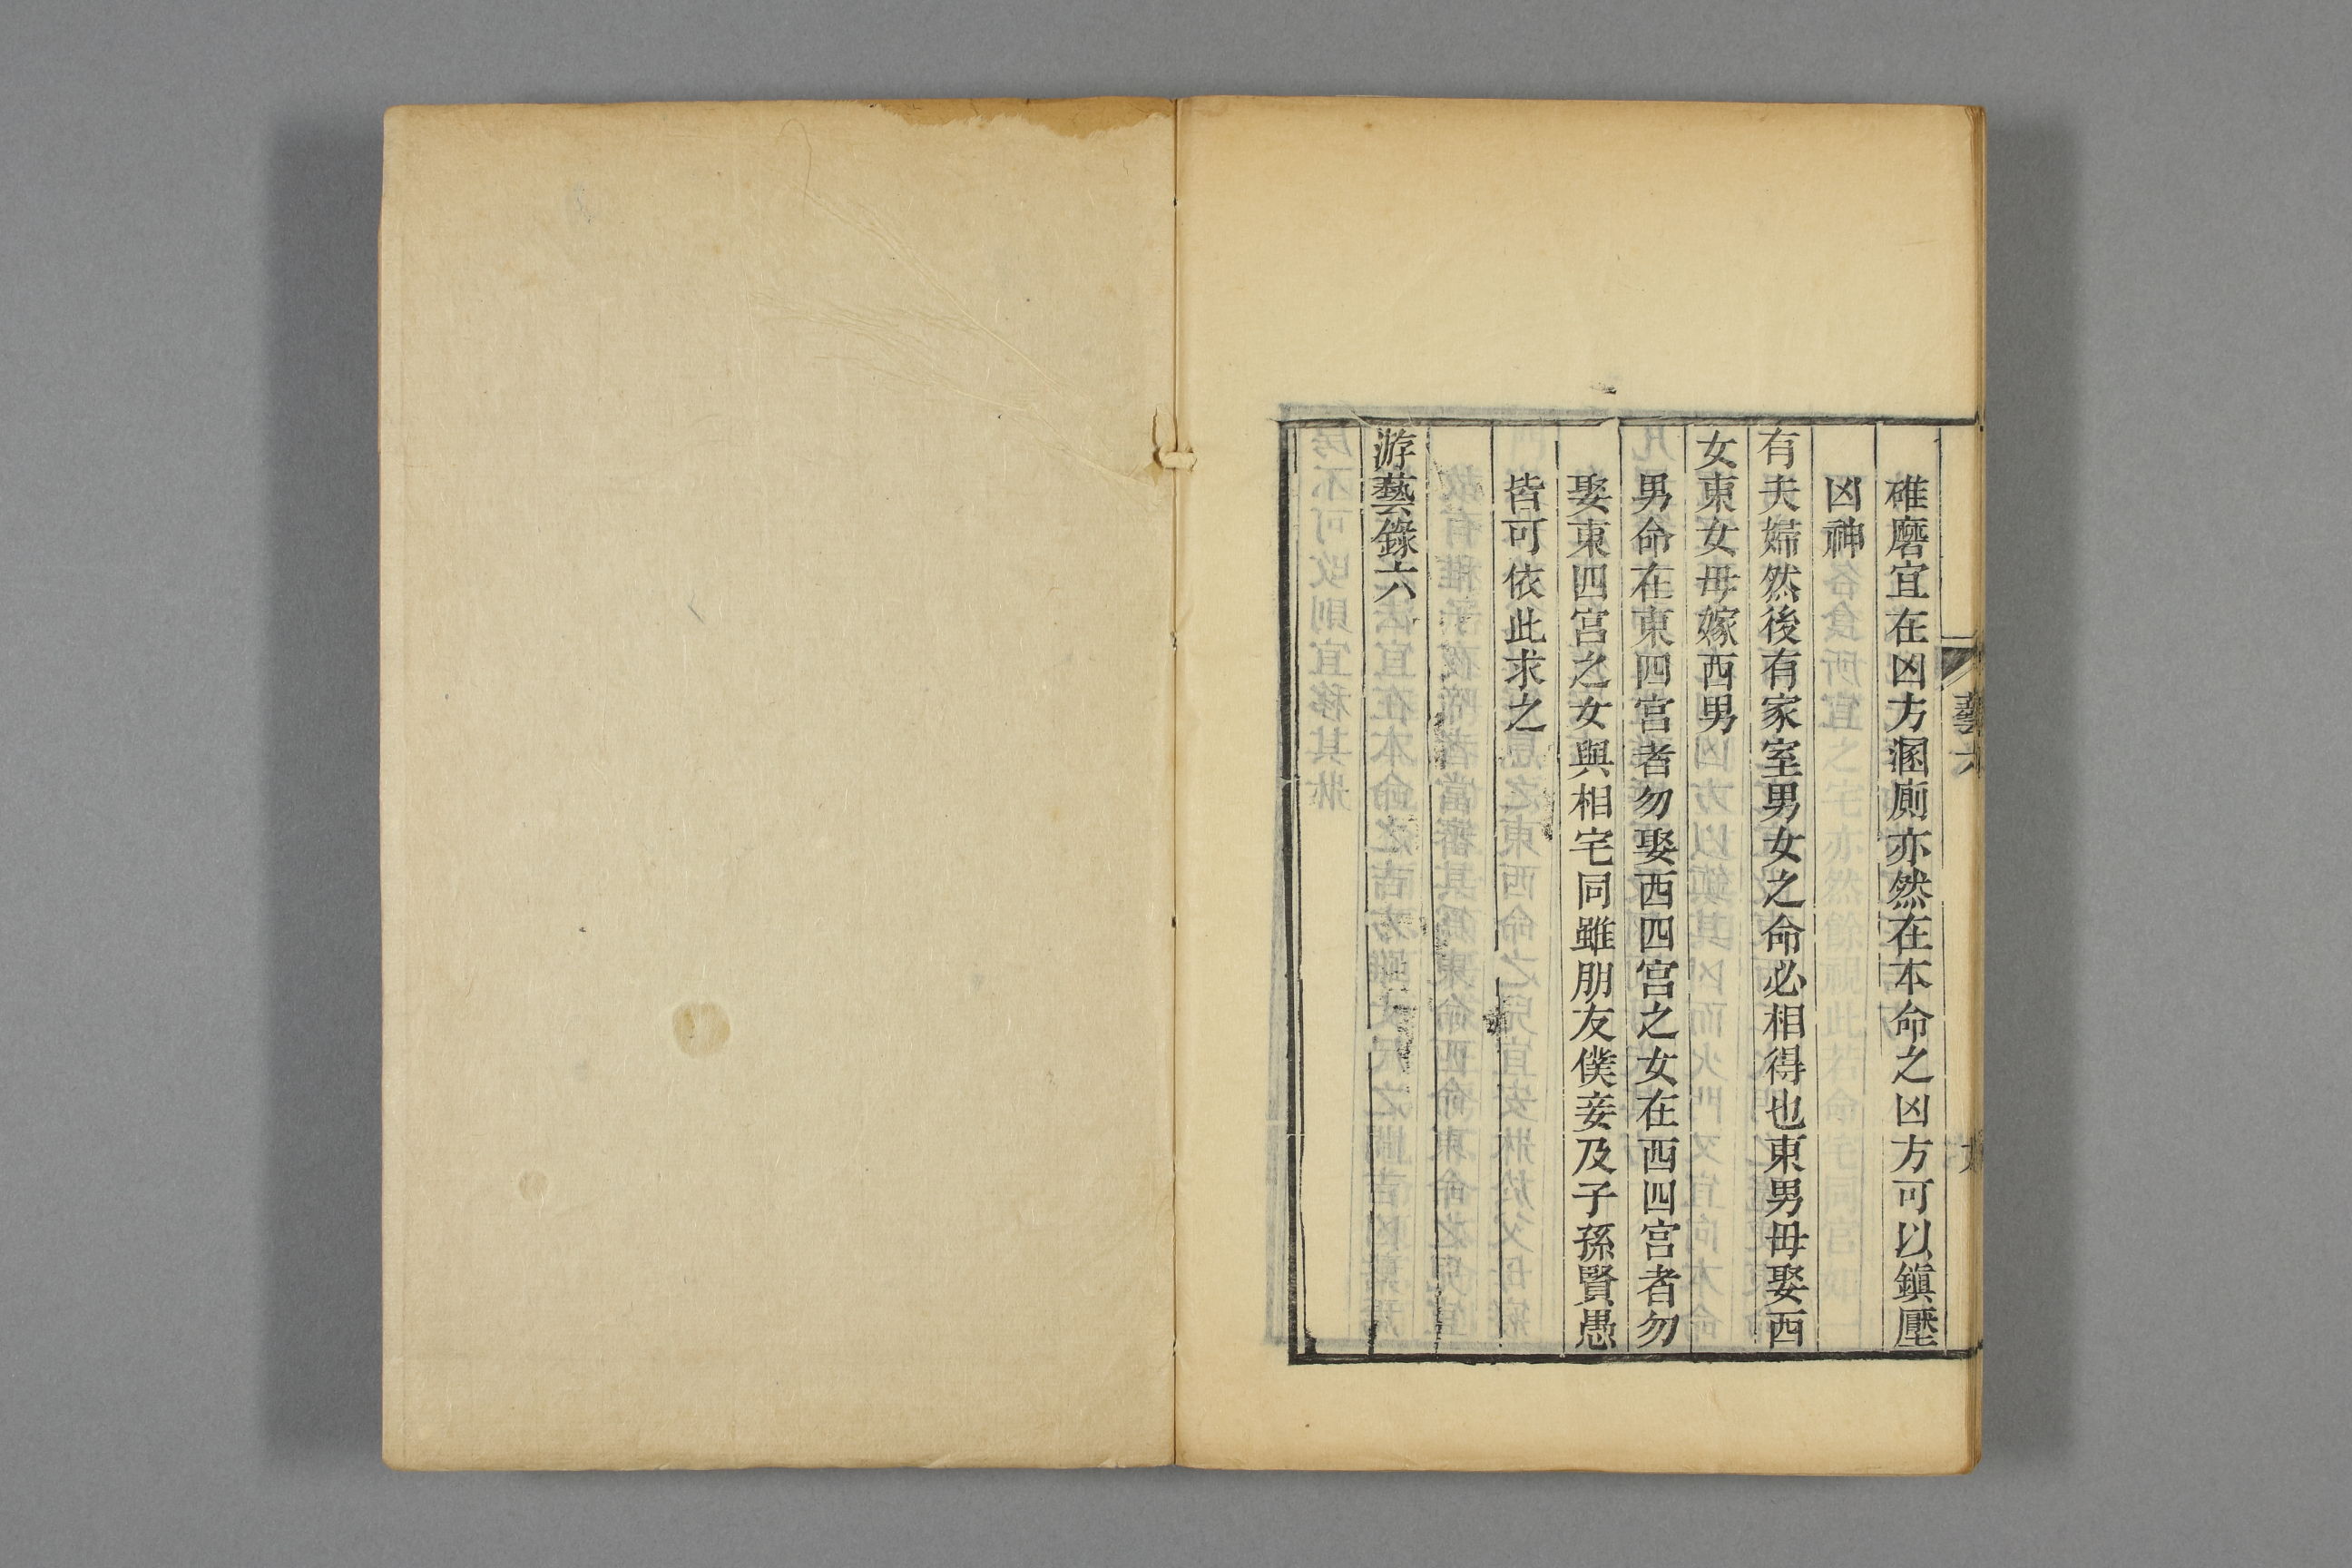 碓磨宜在凶方溷廁亦然在本命之凶方可以鎭壓
凶神
有夫婦然後有家室男女之命必相得也東男毋娶西
女東女毋嫁西男
男命在東四宮者勿娶西四宮之女在西四宮者勿
娶東四宮之女與相宅同雖朋友僕妾及子孫賢愚
皆可依此求之
游藝錄六
藝六